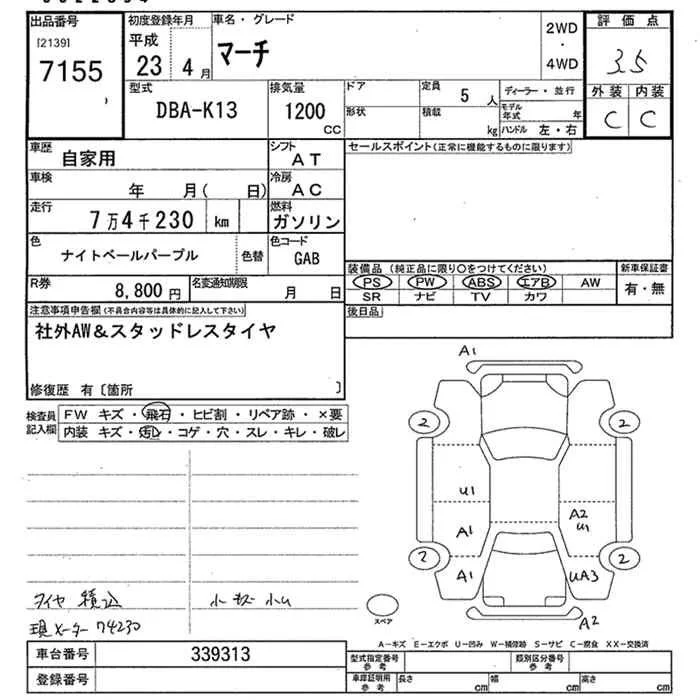 出品番号 初度登録年月 車名・グレード 2WD・4WD 評価点
[2139] 平成 マーチ 3.5
7155 23 4月
型式 排気量 ドア 定員 5人 ディーラー・並行 外装 内装
DBA-K13 1200 CC 形状 積載 kg モデル年式 年 C C
ハンドル 左・右
車歴 自家用 シフト AT セールスポイント(正常に機能するものに限ります)
車検 年 月( 日) 冷房 AC
走行 7万4千230 km 燃料 ガソリン
色 ナイトベールパープル 色替 色コード GAB
装備品 (純正品に限り○をつけてください) 新車保証書
R券 8,800円 名変通知期限 月 日 PS PW ABS エアB AW 有・無
SR ナビ TV カワ
注意事項申告欄(不具合内容等は具体的に記入して下さい) 後日品
社外AW&スタッドレスタイヤ
修復歴 有〔箇所 〕
検査員記入欄 FW キズ・飛石・ヒビ割・リペア跡・×要
内装 キズ・汚レ・コゲ・穴・スレ・キレ・破レ
A1
2 2
U1 A2 U1
A1
2 2
A1 UA3
A2
スペア
タイヤ積込 小キズ 小U
現メーター 74230
A-キズ E-エクボ U-凹み W-補修跡 S-サビ C-腐食 XX-交換済
車台番号 339313 型式指定番号 参考 類別区分番号 参考
登録番号 車庫証明用 参考 長さ cm 幅 cm 高さ cm